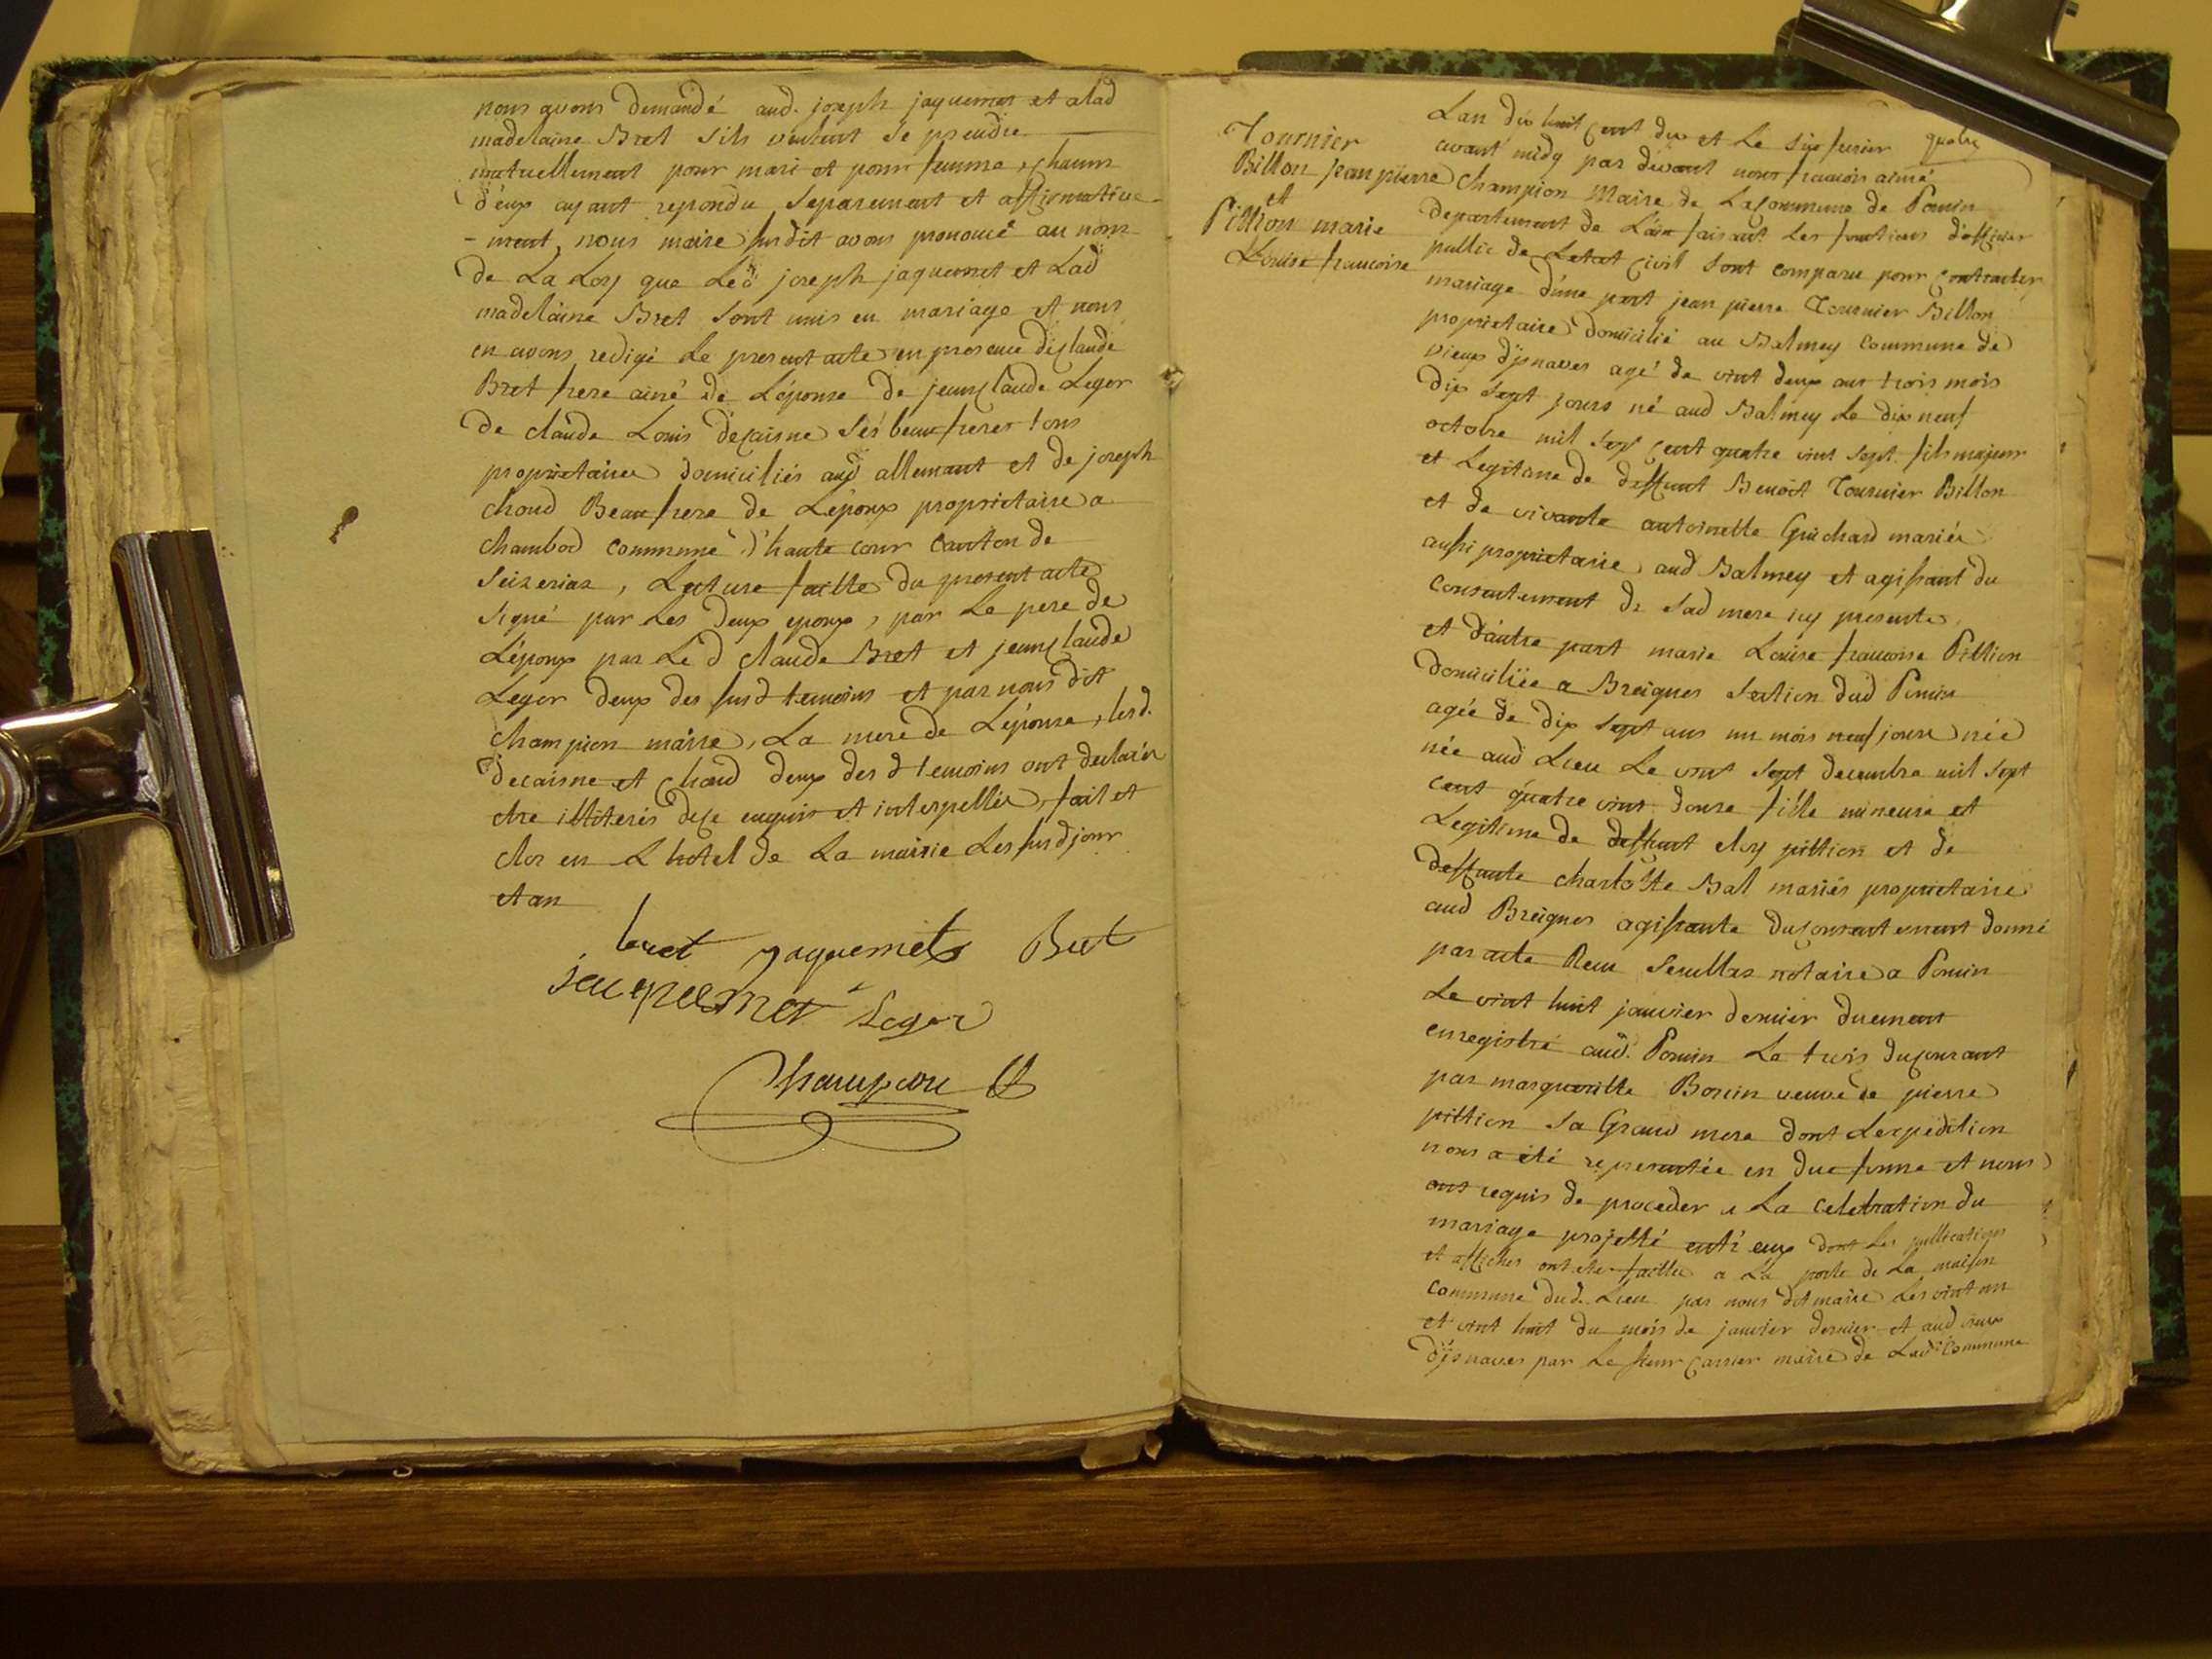 nous avons demandé aud. joseph jaquemet et alad
madelaine Bret sils veulent se prendre
mutuellement pour mari et pour femme, chaum
d'eux ayant repondu separement et affirmative-
-ment, nous maire susdit avons prononcé au nom
de La Loy que Led joseph jaquemet et Lad
madelaine Bret sont unis en mariage et nous
en avons redigé Le present acte en presence de claude
Bret frere ainé de L'épouse de jeanclaude Leger
de claude Louis decaisne ses beaufreres tous
proprietaires domiciliés aud allemant et de joseph
choud Beaufrere de L'époux proprietaire a
chambod commune d'haute cour canton de
Seizeriaz, Lecture faitte du present acte
signé par Les deux epoux, par Le pere de
L'époux par Le d claude Bret et jeanclaude
Leger deux des susd temoins et par nous dit
champion maire, La mere de L'épouse, lesd.
decaisne et choud deux des d temoins ont declarés
etre illiterés de ce enquis et interpellés, fait et
clos en L hotel de La mairie Les susd jour
et an
bret jaquemet Bret
jacquemet Leger
Champion
Tournier
Billon jean pierre
et
Pittion marie
Louise francoise
Lan dix huit cent dix et Le six fevrier quatre
avant midy par devant nous francois aimé
Champion Maire de La commune de Poncin
departement de L'ain faisant Les fonctions d'officier
public de Letat civil sont comparu pour contracter
mariage d'une part jean pierre Tournier Billon
proprietaire domicilié au Balmey commune de
vieux d'jsnaves agé de vint deux ans trois mois
dix sept jours né aud Balmey Le dix neuf
octobre mil sept cent quatre vint sept fils majeur
et Legitime de deffunt Benoit Tournier Billon
et de vivante antoinette Guichard mariée
aussi proprietaire aud Balmey et agissant du
consentement de sad mere icy presente,
et d'autre part marie Louise francoise Pittion
domiciliée a Breignes section dud Poncin
agée de dix sept ans un mois neuf jours née
née aud Lieu Le vint sept decembre mil sept
cent quatre vint douze fille mineure et
Legitime de deffunt eloy pittion et de
deffunte charlotte Bal mariés proprietaire
aud Breignes agissante du consentement donné
par acte Recu notaire a Poncin
Le vint huit janvier dernier duement
enregistré aud. Poncin Le trois du courant
par margueritte Bonin veuve de pierre
pittion sa Grand mere dont Lexpedition
nous a été representée en due forme et nous
ont requis de proceder a La celebration du
mariage projetté entr'eux dont Les publications
et affiches ont eté faittes a La porte de La maison
commune dud. Lieu par nous dit maire Les vint un
et vint huit du mois de janvier dernier et aud vieux
d'jsnaves par Le sieur maire de Lad. commune